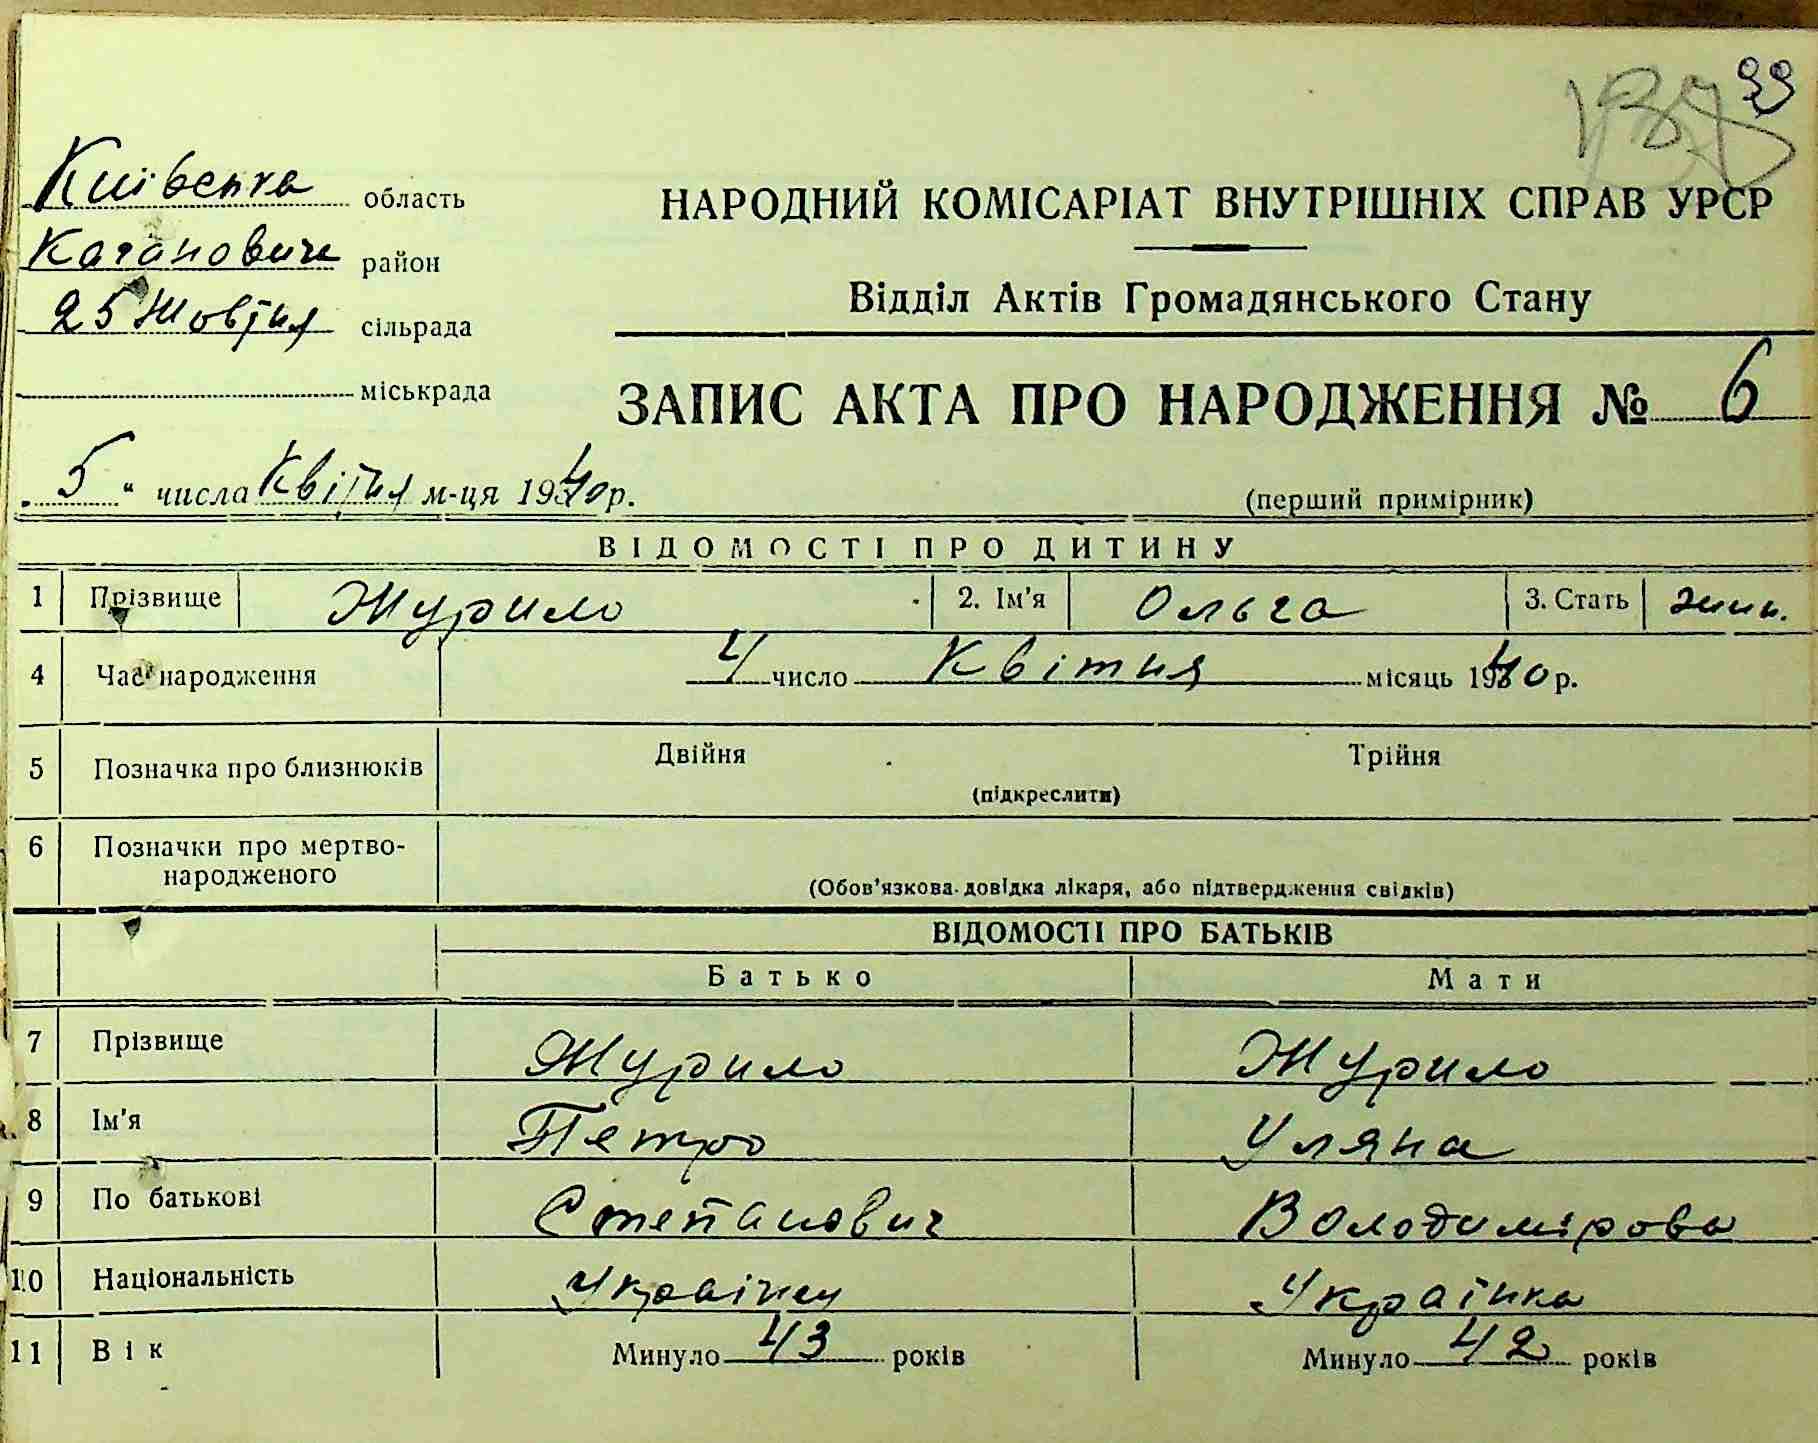 99
Київська область
Каганович район
25 Жовтня сільрада
міськрада
НАРОДНИЙ КОМІСАРІАТ ВНУТРІШНІХ СПРАВ УРСР
Відділ Актів Громадянського Стану
ЗАПИС АКТА ПРО НАРОДЖЕННЯ № 6
„5“ числа Квітня м-ця 1940 р.
(перший примірник)
ВІДОМОСТІ ПРО ДИТИНУ
1 Прізвище Журило 2. Ім'я Ольга 3. Стать жін.
4 Час народження 4 число Квітня місяць 1940 р.
5 Позначка про близнюків Двійня Трійня
(підкреслити)
6 Позначки про мертво-
народженого
(Обов'язкова довідка лікаря, або підтвердження свідків)
ВІДОМОСТІ ПРО БАТЬКІВ
Батько Мати
7 Прізвище Журило Журило
8 Ім'я Петро Уляна
9 По батькові Степанович Володимірова
10 Національність Українец Українка
11 Вік Минуло 43 років Минуло 42 років